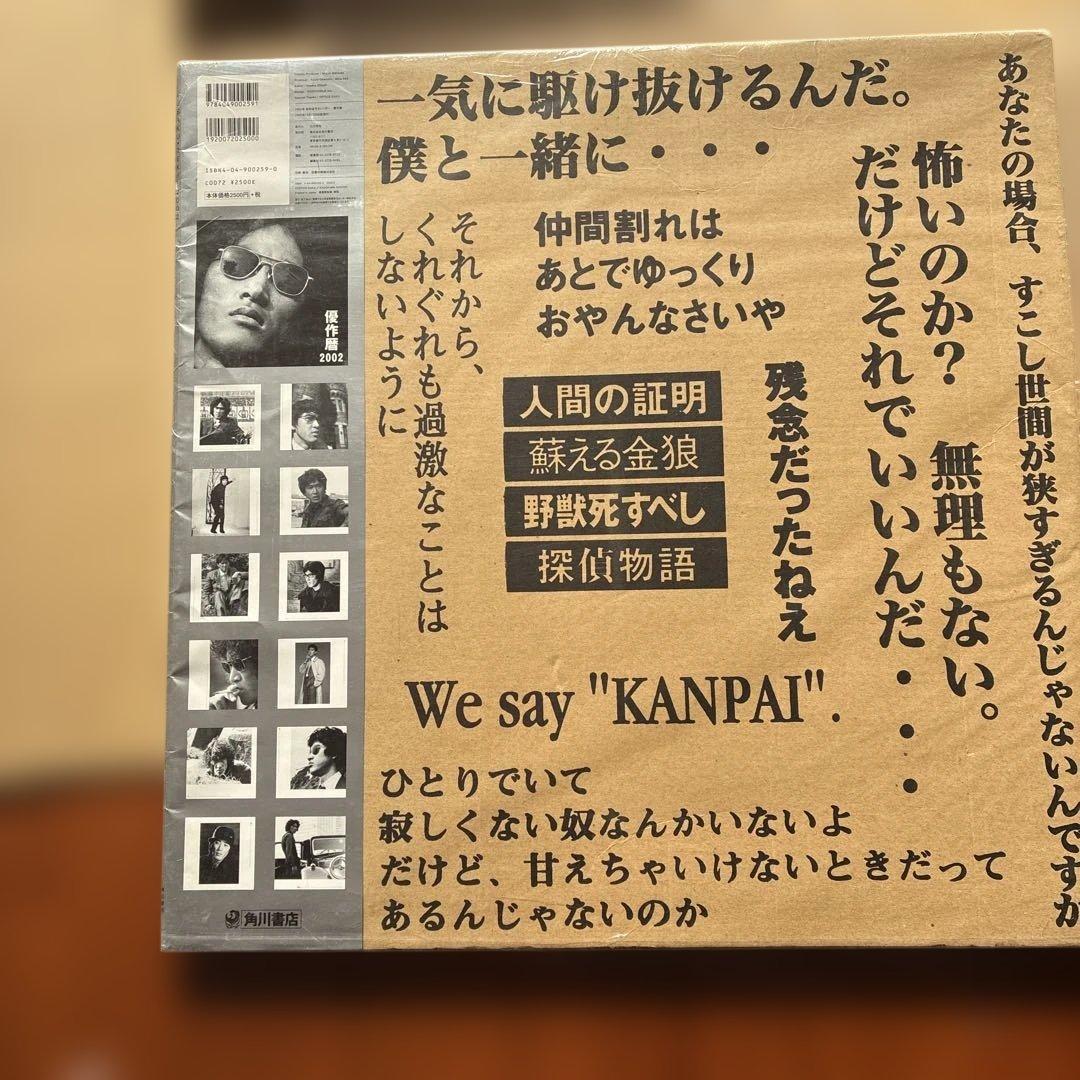 9784049002591
1920072025000
ISBN4-04-900259-0
C0072 ¥2500E
本体価格2500円+税
優作暦
2002
角川書店
一気に駆け抜けるんだ。
僕と一緒に・・・
あなたの場合、すこし世間が狭すぎるんじゃないんですか
怖いのか? 無理もない。
だけどそれでいいんだ・・・
仲間割れは
あとでゆっくり
おやんなさいや
それから、
くれぐれも過激なことは
しないように
人間の証明
蘇える金狼
野獣死すべし
探偵物語
残念だったねえ
We say "KANPAI".
ひとりでいて
寂しくない奴なんかいないよ
だけど、甘えちゃいけないときだって
あるんじゃないのか